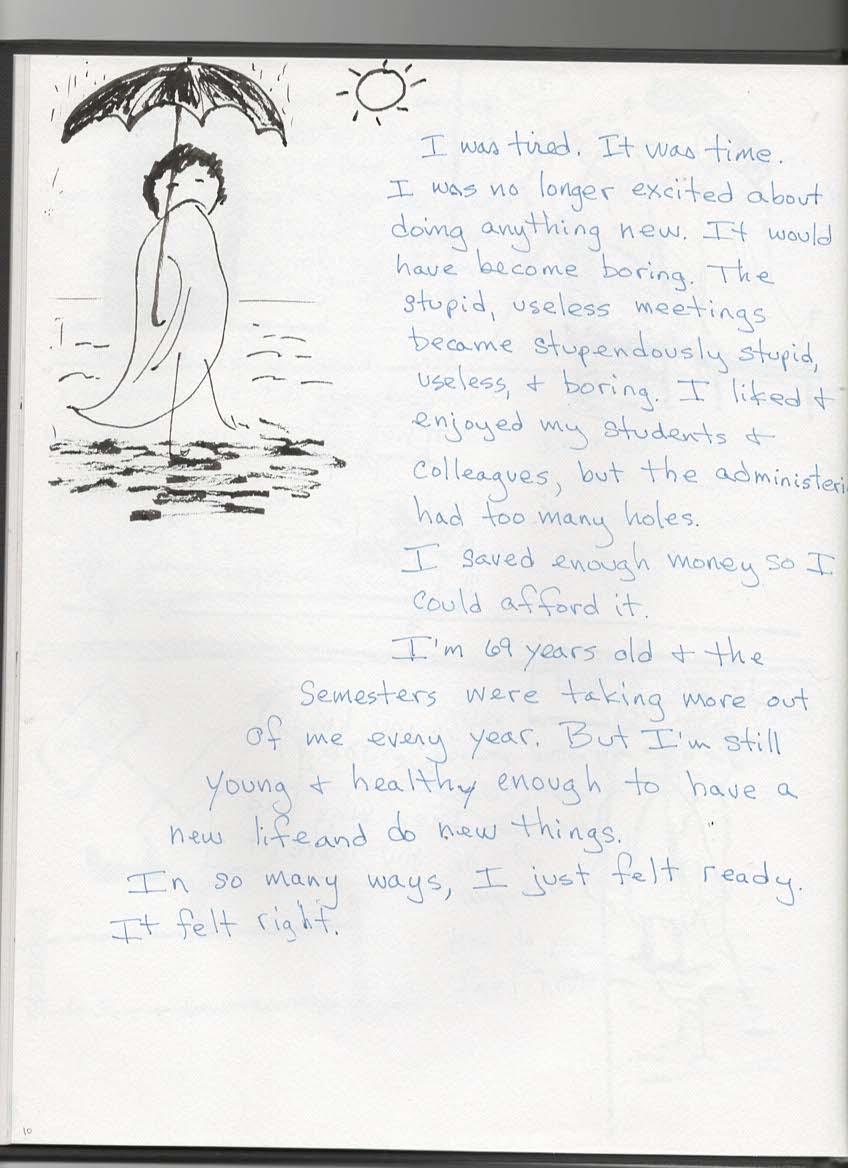 I was tired. It was time.
I was no longer excited about
doing anything new. It would
have become boring. The
stupid, useless meetings
became stupendously stupid,
useless, & boring. I liked &
enjoyed my students &
colleagues, but the administeri
had too many holes.
I saved enough money so I
could afford it.
I'm 69 years old & the
Semesters were taking more out
of me every year. But I'm still
young & healthy enough to have a
new life and do new things.
In so many ways, I just felt ready.
It felt right.
10